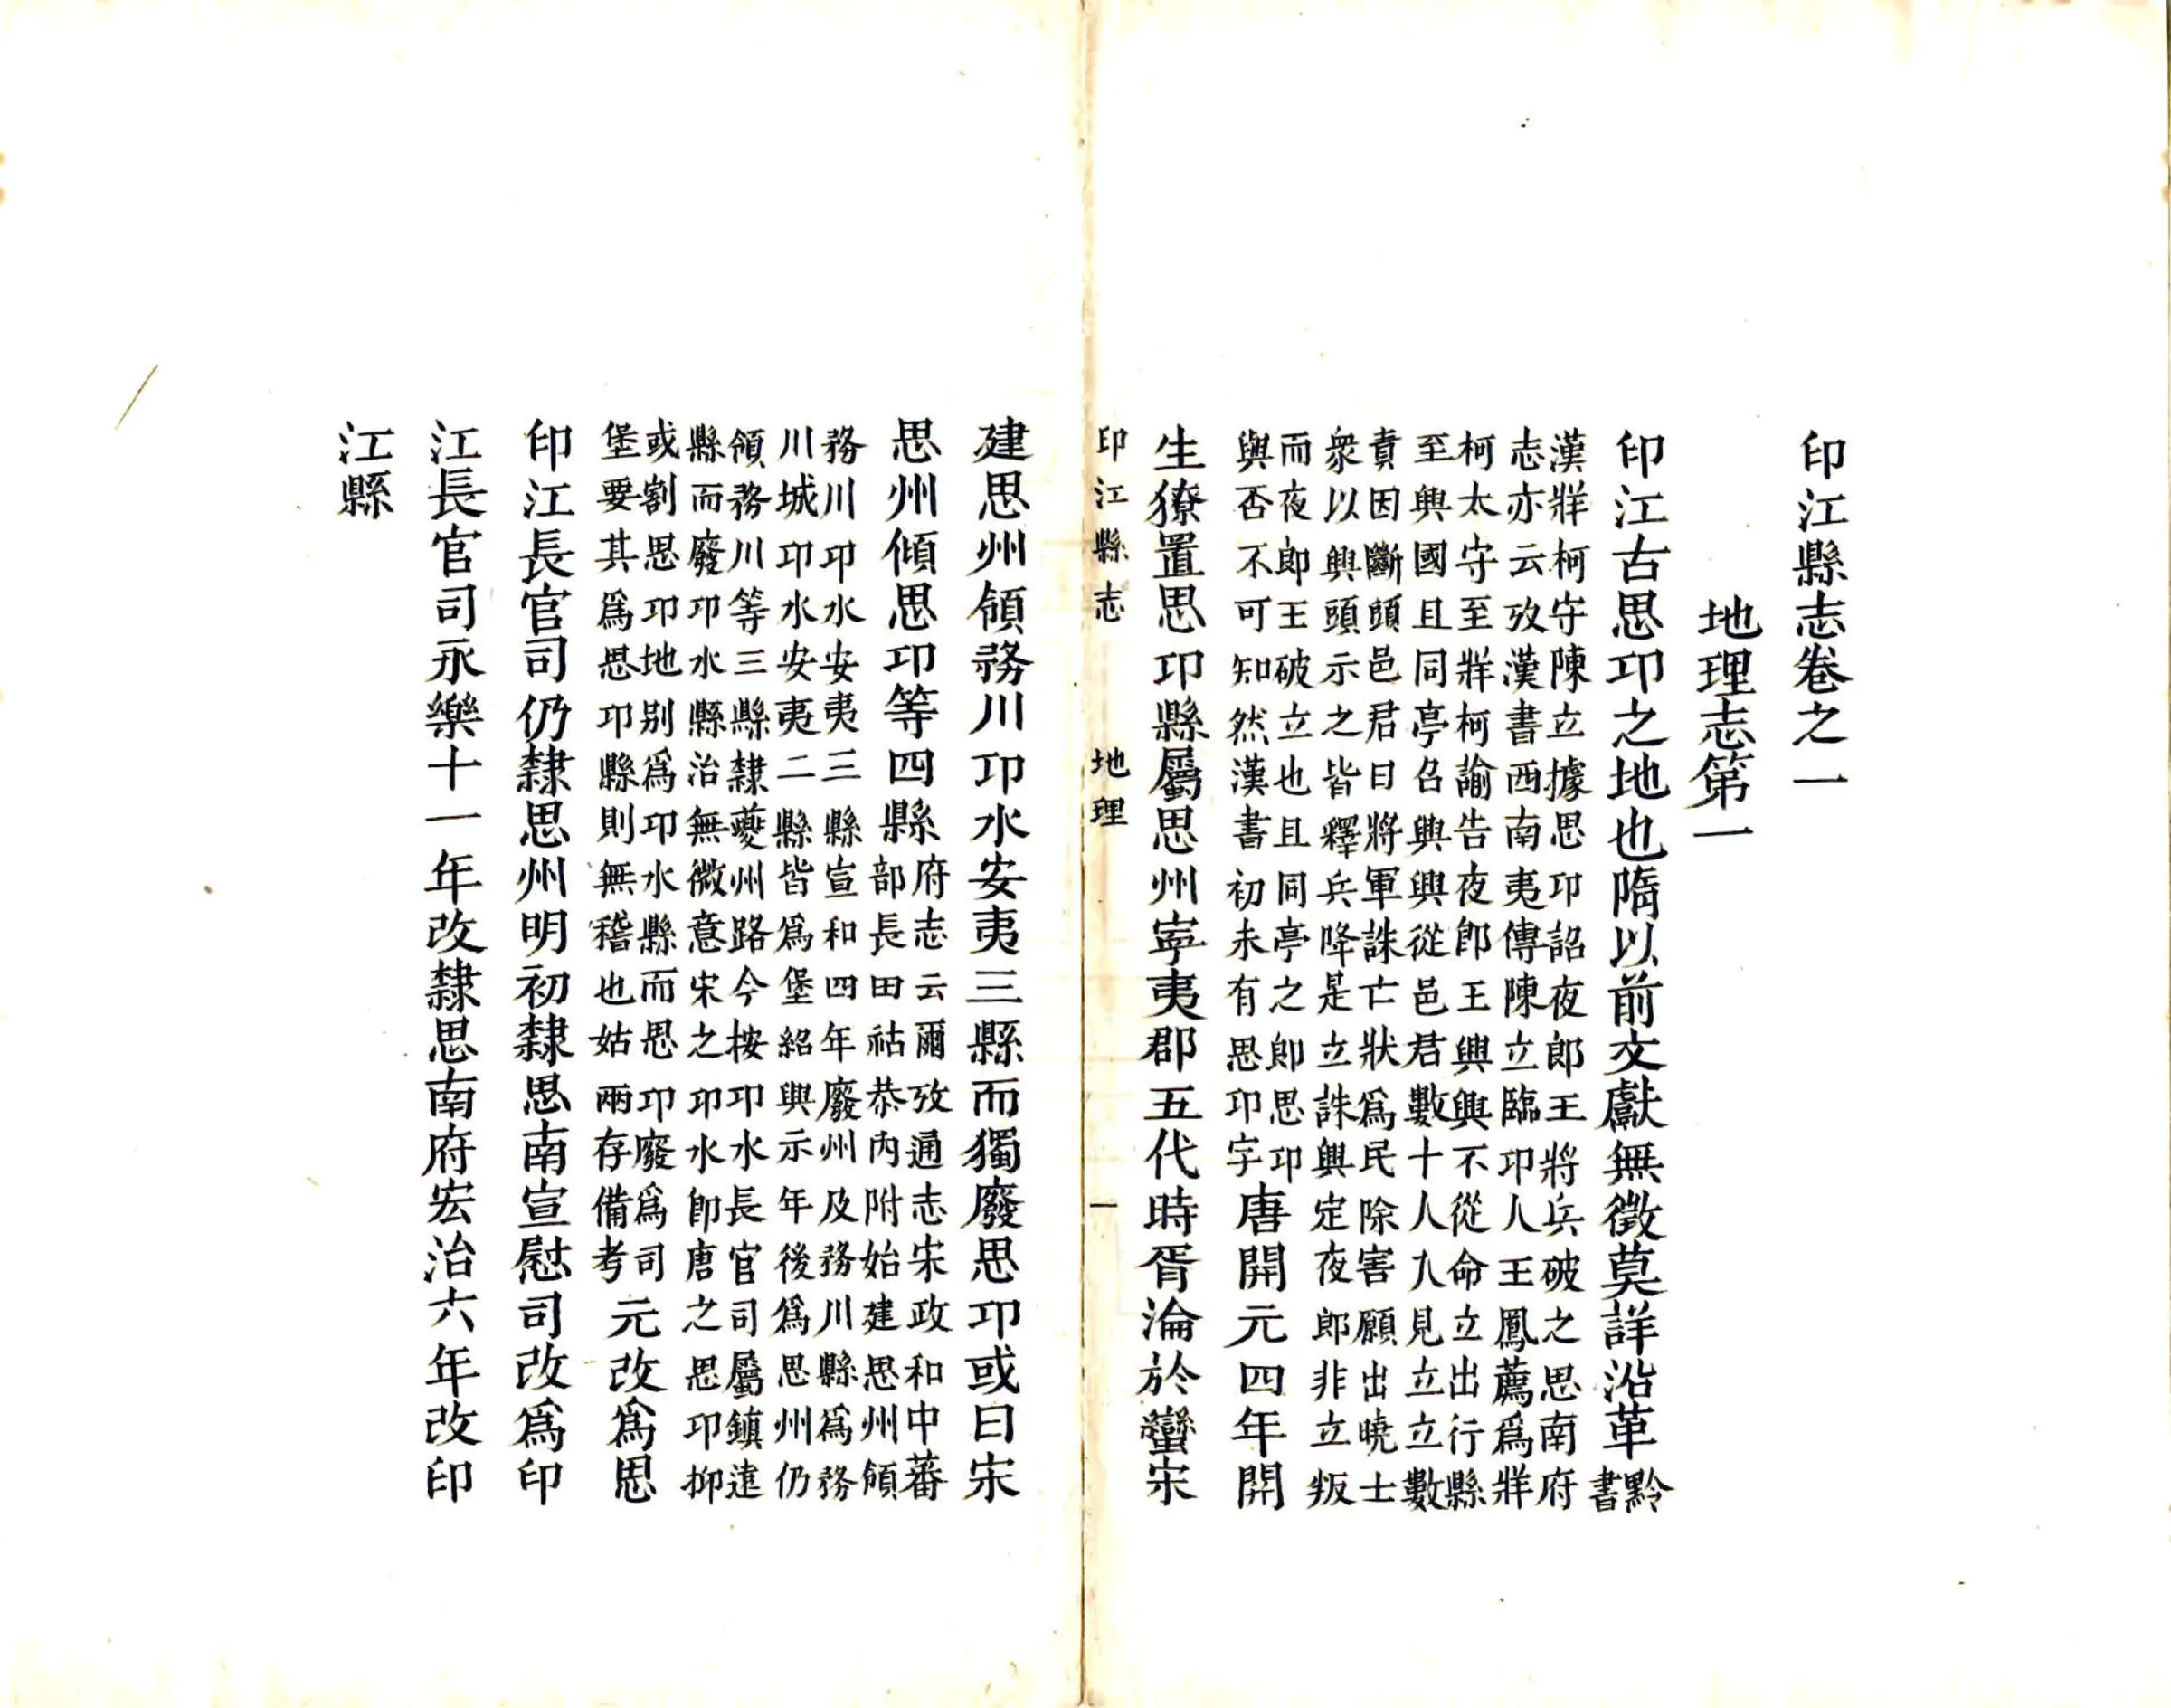 印江縣志卷之一
地理志第一
印江古思卭之地也隋以前文獻無徵莫詳沿革
黔
書
漢牂柯守陳立據思卭詔夜郎王將兵破之思南府
志亦云攷漢書西南夷傳陳立臨卭人王鳳薦爲牂
柯太守至牂柯諭告夜郎王興興不從命立出行縣
至興國且同亭召興興從邑君數十人入見立立數
責因斷頭邑君曰將軍誅亡狀爲民除害願出曉士
衆以興頭示之皆釋兵降是立誅興定夜郎非立叛
而夜郎王破立也且同亭之卽思卭
與否不可知然漢書初未有思卭字
唐開元四年開
生獠置思卭縣屬思州寧夷郡五代時胥淪於蠻宋
印江縣志 地理 一
建思州領務川卭水安夷三縣而獨廢思卭或曰宋
思州傾思卭等四縣
府志云爾攷通志宋政和中蕃
部長田祜恭内附始建思州領
務川卭水安夷三縣宣和四年廢州及務川縣爲務
川城卭水安夷二縣皆爲堡紹興示年後爲思州仍
領務川等三縣隸夔州路今按卭水長官司屬鎮遠
縣而廢卭水縣治無微意宋之卭水卽唐之思卭抑
或割思卭地别爲卭水縣而思卭廢爲司
堡要其爲思卭縣則無稽也姑兩存備考
元改爲思
印江長官司仍隸思州明初隸思南宣慰司改爲印
江長官司永樂十一年改隸思南府宏治六年改印
江縣